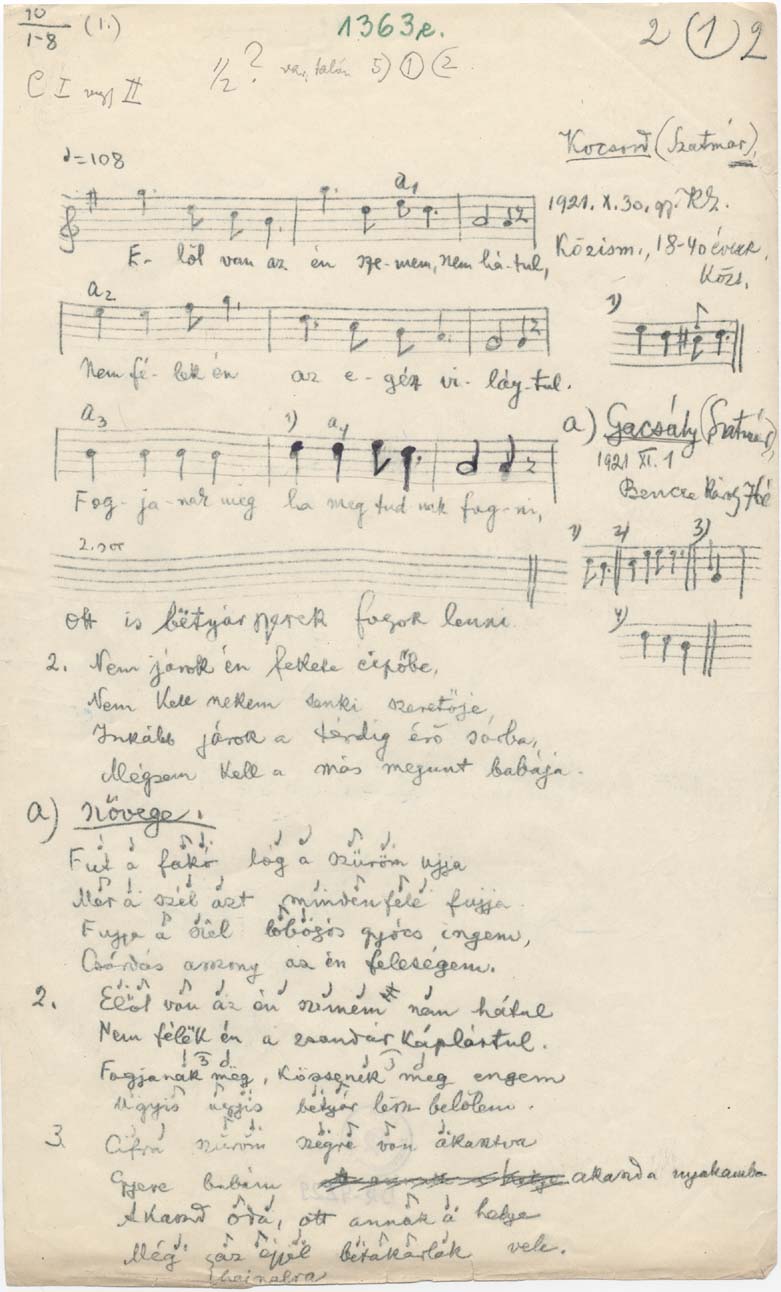 10
1-8 (1.) 1363e. 2 (1) 2
1/2 ? var. talán 5) (1) (2
C I vagy II
Kocsord (Szatmár),
♩=108
1921. X. 30. gy.
a1
Közism., 18-40 évesek,
Közs.
E- lől van az én sze-mem, nem há-tul,
a2
1)
Nem fé- lek én az e- gész vi- lág-tul.
a3 1) a4
a) Gacsály (Szatmár),
1921 XI. 1
Bencze
Fog- ja- nak meg ha meg tud- nak fog- ni,
2. sor
1) 2) 3)
4)
Ott is bëtyár gyerek fogok lenni
2. Nem járok én fekete cipőbe,
Nem kell nekem senki szeretője,
Inkább járok a térdig érő sárba,
Mégsem kell a más megunt babája.
a) szövege.
Fut a fakó lóg a szűröm ujja
Mer a szél azt mindenfelé fujja.
Fujja a szél lobogós gyócs ingem,
Csárdás asszony az én feleségem.
2. Elől van az én szemem nem hátul
Nem félëk én a zsandár káplártul.
Fogjanak mëg, kössenek meg engem
Ugyis ugyis bëtyár lësz belőlem.
3. Cifra szűröm szegre van akasztva
Gyere babám akaszd a nyakamba
Akaszd oda, ott annak a helye
Még az éjjel betakarlak vele.
hajnalra